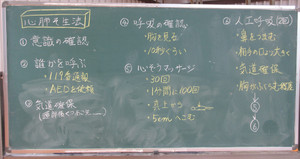 心肺そ生法
① 意識の確認
② 誰かを呼ぶ
・119番通報
・AEDを依頼
③ 気道確保
④ 呼吸の確認
・胸を見る
・10秒くらい
⑤ 心ぞうマッサージ
・30回
・1分間に100回
・真上から
・5cmへこむ
⑥ 人工呼吸(2回)
・鼻をつまむ
・気道確保
・胸がふくらむ程度